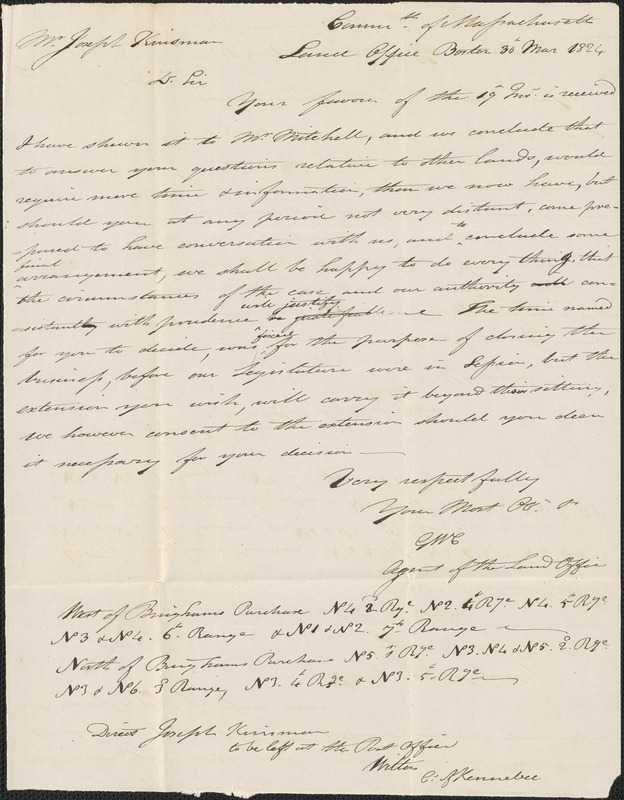 Comm'th of Massachusetts
Mr. Joseph Kinsman
Land Office Boston 30th Mar 1824
Dr. Sir
Your favour of the 19 Ins. is received
I have shewn it to Mr. Mitchell, and we conclude that
to answer your questions relative to other lands, would
require more time & information, than we now have, but
should you at any period not very distant, come pre-
pared to have conversation with us, and to conclude some
final
arrangement, we shall be happy to do every thing, that
the circumstances of the case and our authority con-
will justify
sistantly with prudence The time named
for you to decide, was fixed, for the purpose of closing the
business, before our Legislature were in Session, but the
extension you wish, will carry it beyond their sitting,
we however consent to the extension should you deem
it necessary for your decision —
Very respectfully
Your Most Ob. S
GWC
Agent of the Land Office
West of Binghams Purchase N4 2d Rge N2. 4th Rge N4. 5th Rge
N3 & N4. 6th Range & N1 & N2. 7th Range
North of Binghams Purchase N5. 1st Rge N3. N4 & N5. 2d Rge.
N3 & N6. 3d Range, N3. 4th Rge & N3. 5th Rge
Direct Joseph Kinsman
to be left at the Post Office
Wilton
Co. of Kennebec